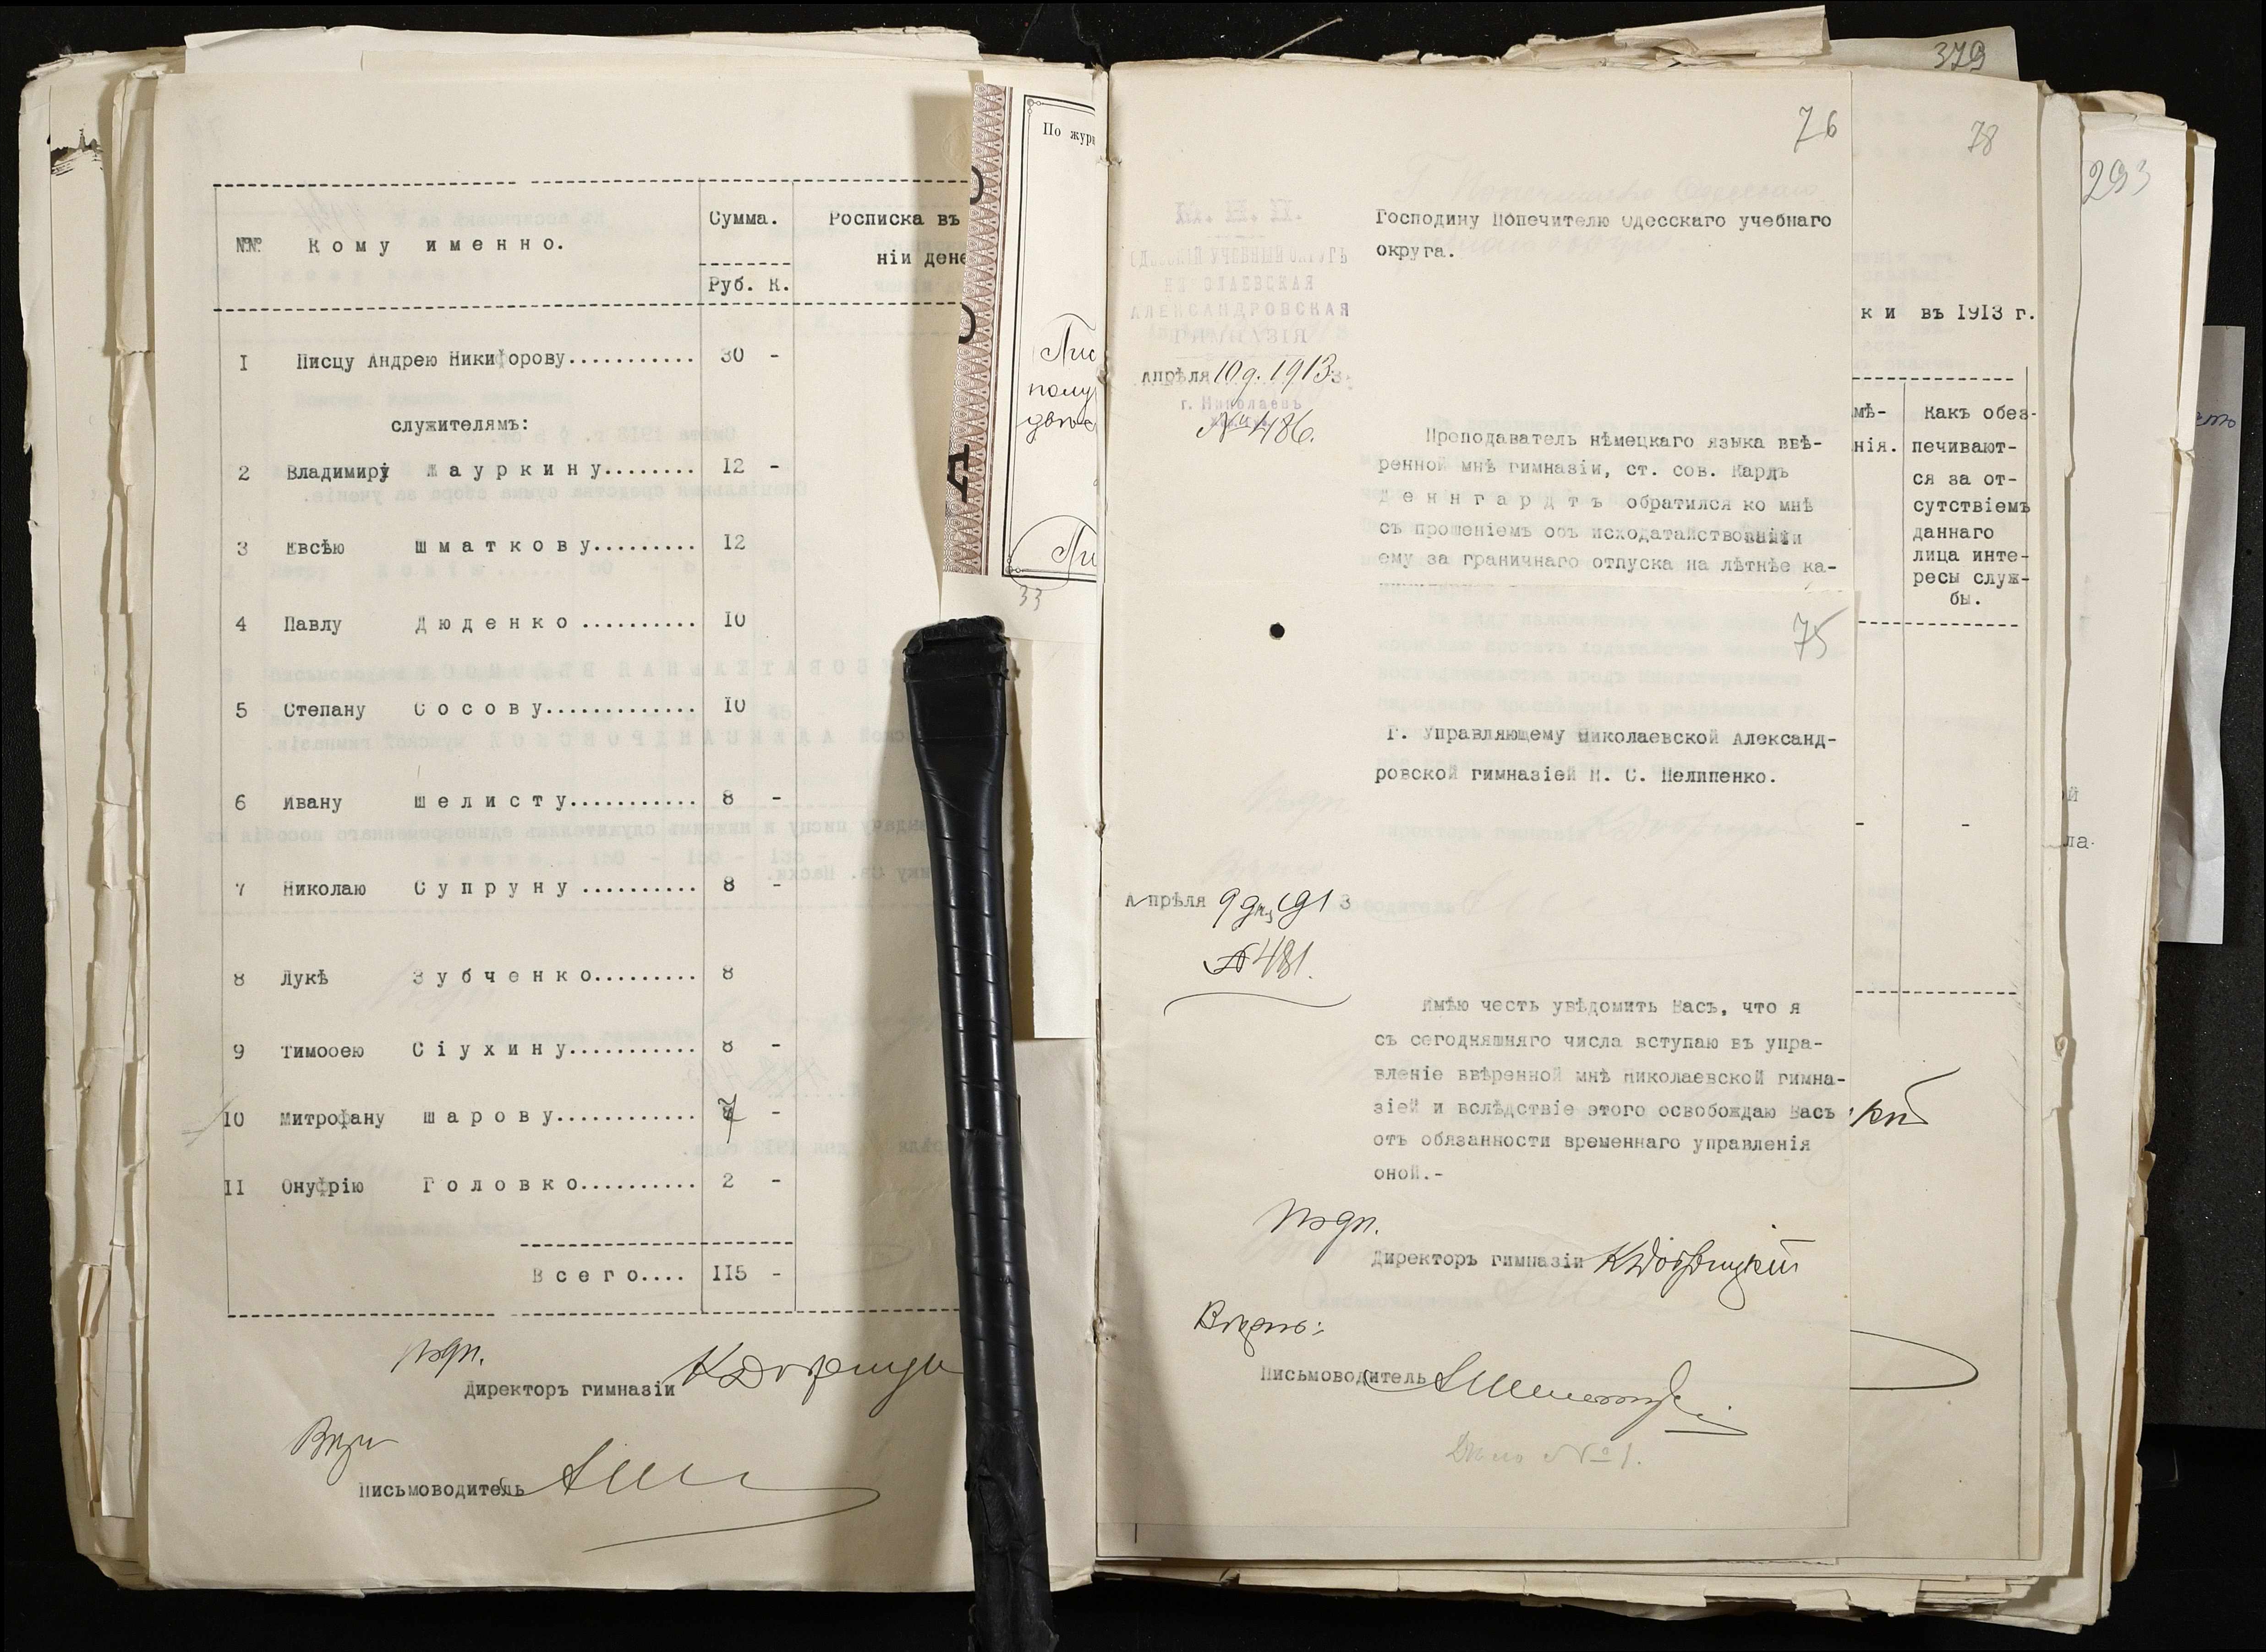 №№ Кому именно. Сумма. Росписка въ
ніи дене
Руб. К.
I Писцу Андрею Никифорову........... 30 -
служителямъ:
2 Владимиру Жауркину........ 12 -
3 Евсѣю Шматкову......... 12
4 Павлу Дюденко.......... 10
5 Степану Сосову............. 10
6 Ивану Шелисту........... 8 -
7 Николаю Супруну.......... 8 -
8 Лукѣ Зубченко......... 8
9 Тимоѳею Сіухину........... 8 -
10 Митрофану Шарову............ 7 -
II Онуфрію Головко.......... 2 -
Всего.... 115 -
подп.
Директоръ гимназіи
Письмоводитель
По журн
полу
33
379
76
Господину Попечителю Одесскаго учебнаго
округа.
М. Н. П.
ОДЕССКІЙ УЧЕБНЫЙ ОКРУГЪ
НИКОЛАЕВСКАЯ
АЛЕКСАНДРОВСКАЯ
ГИМНАЗІЯ
Апрѣля 10 д. 1913
г. Николаевъ
№ 486.
Преподаватель нѣмецкаго языка ввѣ-
ренной мнѣ гимназіи, ст. сов. Карлъ
Деннгардтъ обратился ко мнѣ
съ прошеніемъ объ исходатайствованіи
ему за граничнаго отпуска на лѣтнѣе ка-
75
Г. Управляющему Николаевской Александ-
ровской гимназіей Н. С. Пелипенко.
Апрѣля 9 дня 1913
№ 481.
Имѣю честь увѣдомить Васъ, что я
съ сегодняшняго числа вступаю въ упра-
вленіе ввѣренной мнѣ Николаевской гимна-
зіей и вслѣдствіе этого освобождаю Васъ
отъ обязанности временнаго управленія
оной.-
подп.
Директоръ гимназіи
Вѣрно:
Письмоводитель
Дѣло № 1.
78
ки въ 1913 г.
мѣ-
нія.
Какъ обез-
печивают-
ся за от-
сутствіемъ
даннаго
лица инте-
ресы служ-
бы.
- -
293